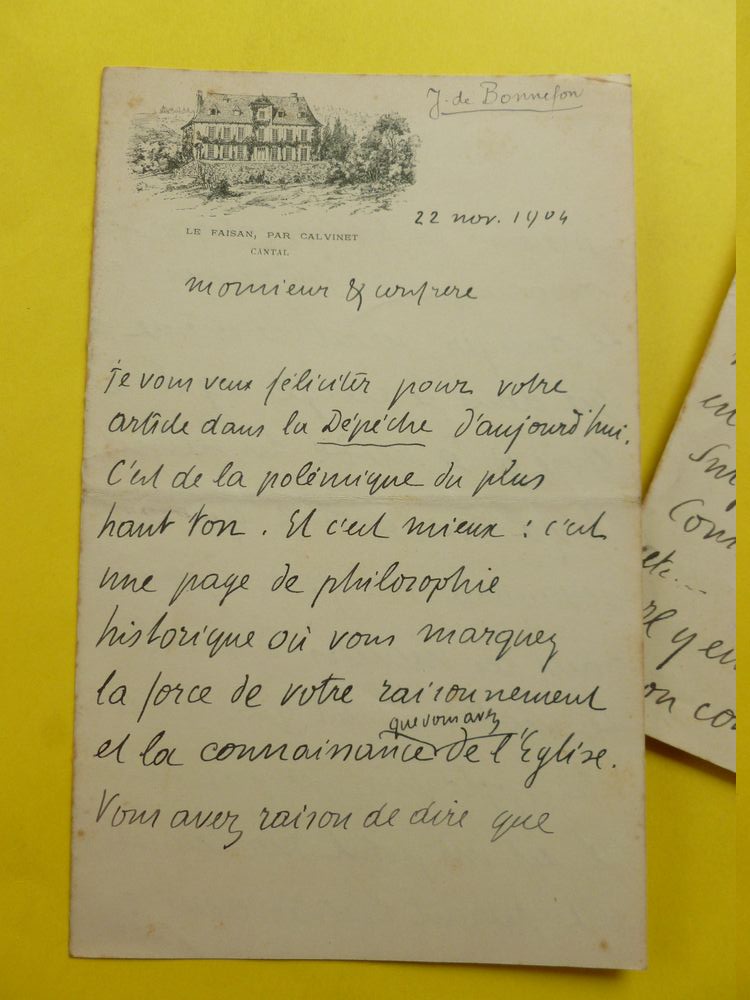 J. de Bonnefon
22 nov. 1904
LE FAISAN, PAR CALVINET
CANTAL
Monsieur & confrere
Je vous veux féliciter pour votre
article dans la Dépêche d'aujourd'hui.
C'est de la polémique du plus
haut ton. Et c'est mieux : c'est
une page de philosophie
historique où vous marquez
la force de votre raisonnement
que vous avez
et la connaissance de l'Eglise.
Vous avez raison de dire que
en
etc...
re y en
on co